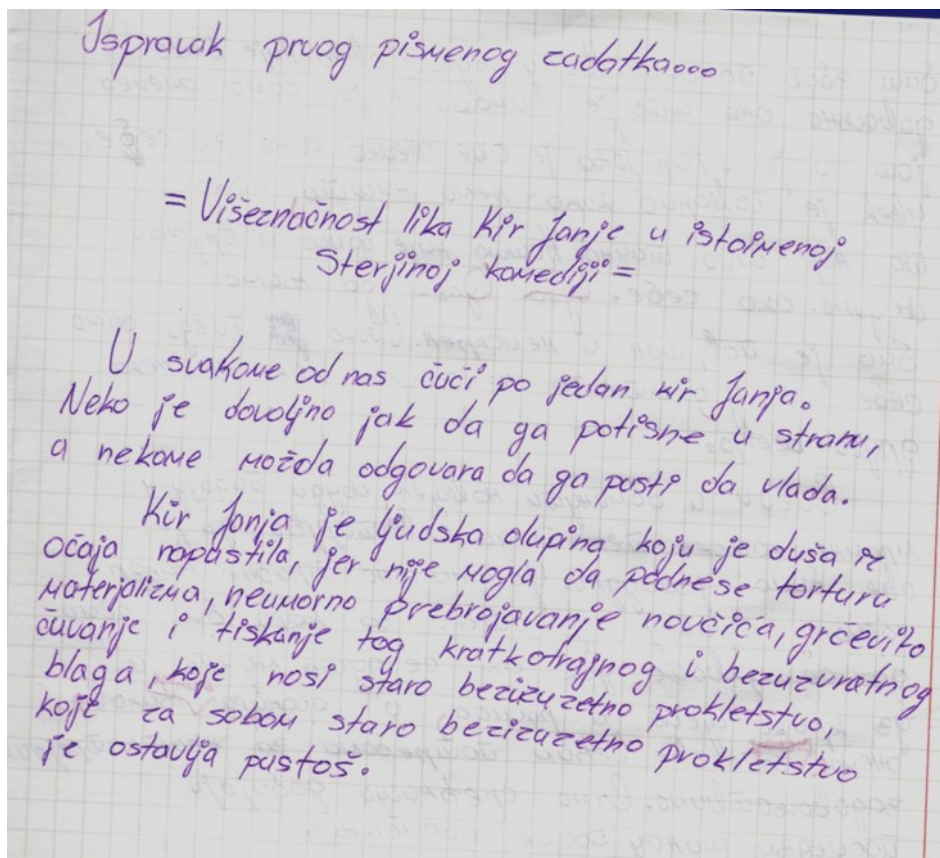 Ispravak prvog pismenog zadatka...
= Višeznačnost lika Kir Janje u istoimenoj
Sterijinoj komediji =
U svakome od nas čuči po jedan kir Janja.
Neko je dovoljno jak da ga potisne u stranu,
a nekome možda odgovara da ga pusti da vlada.
Kir Janja je ljudska olupina koju je duša iz
očaja napustila, jer nije mogla da podnese torturu
materjalizma, neumorno prebrojavanje novčića, grčevito
čuvanje i tiskanje tog kratkotrajnog i bezuzvratnog
blaga, koje nosi staro bezizuzetno prokletstvo,
koje za sobom staro bezizuzetno prokletstvo
je ostavlja pustoš.